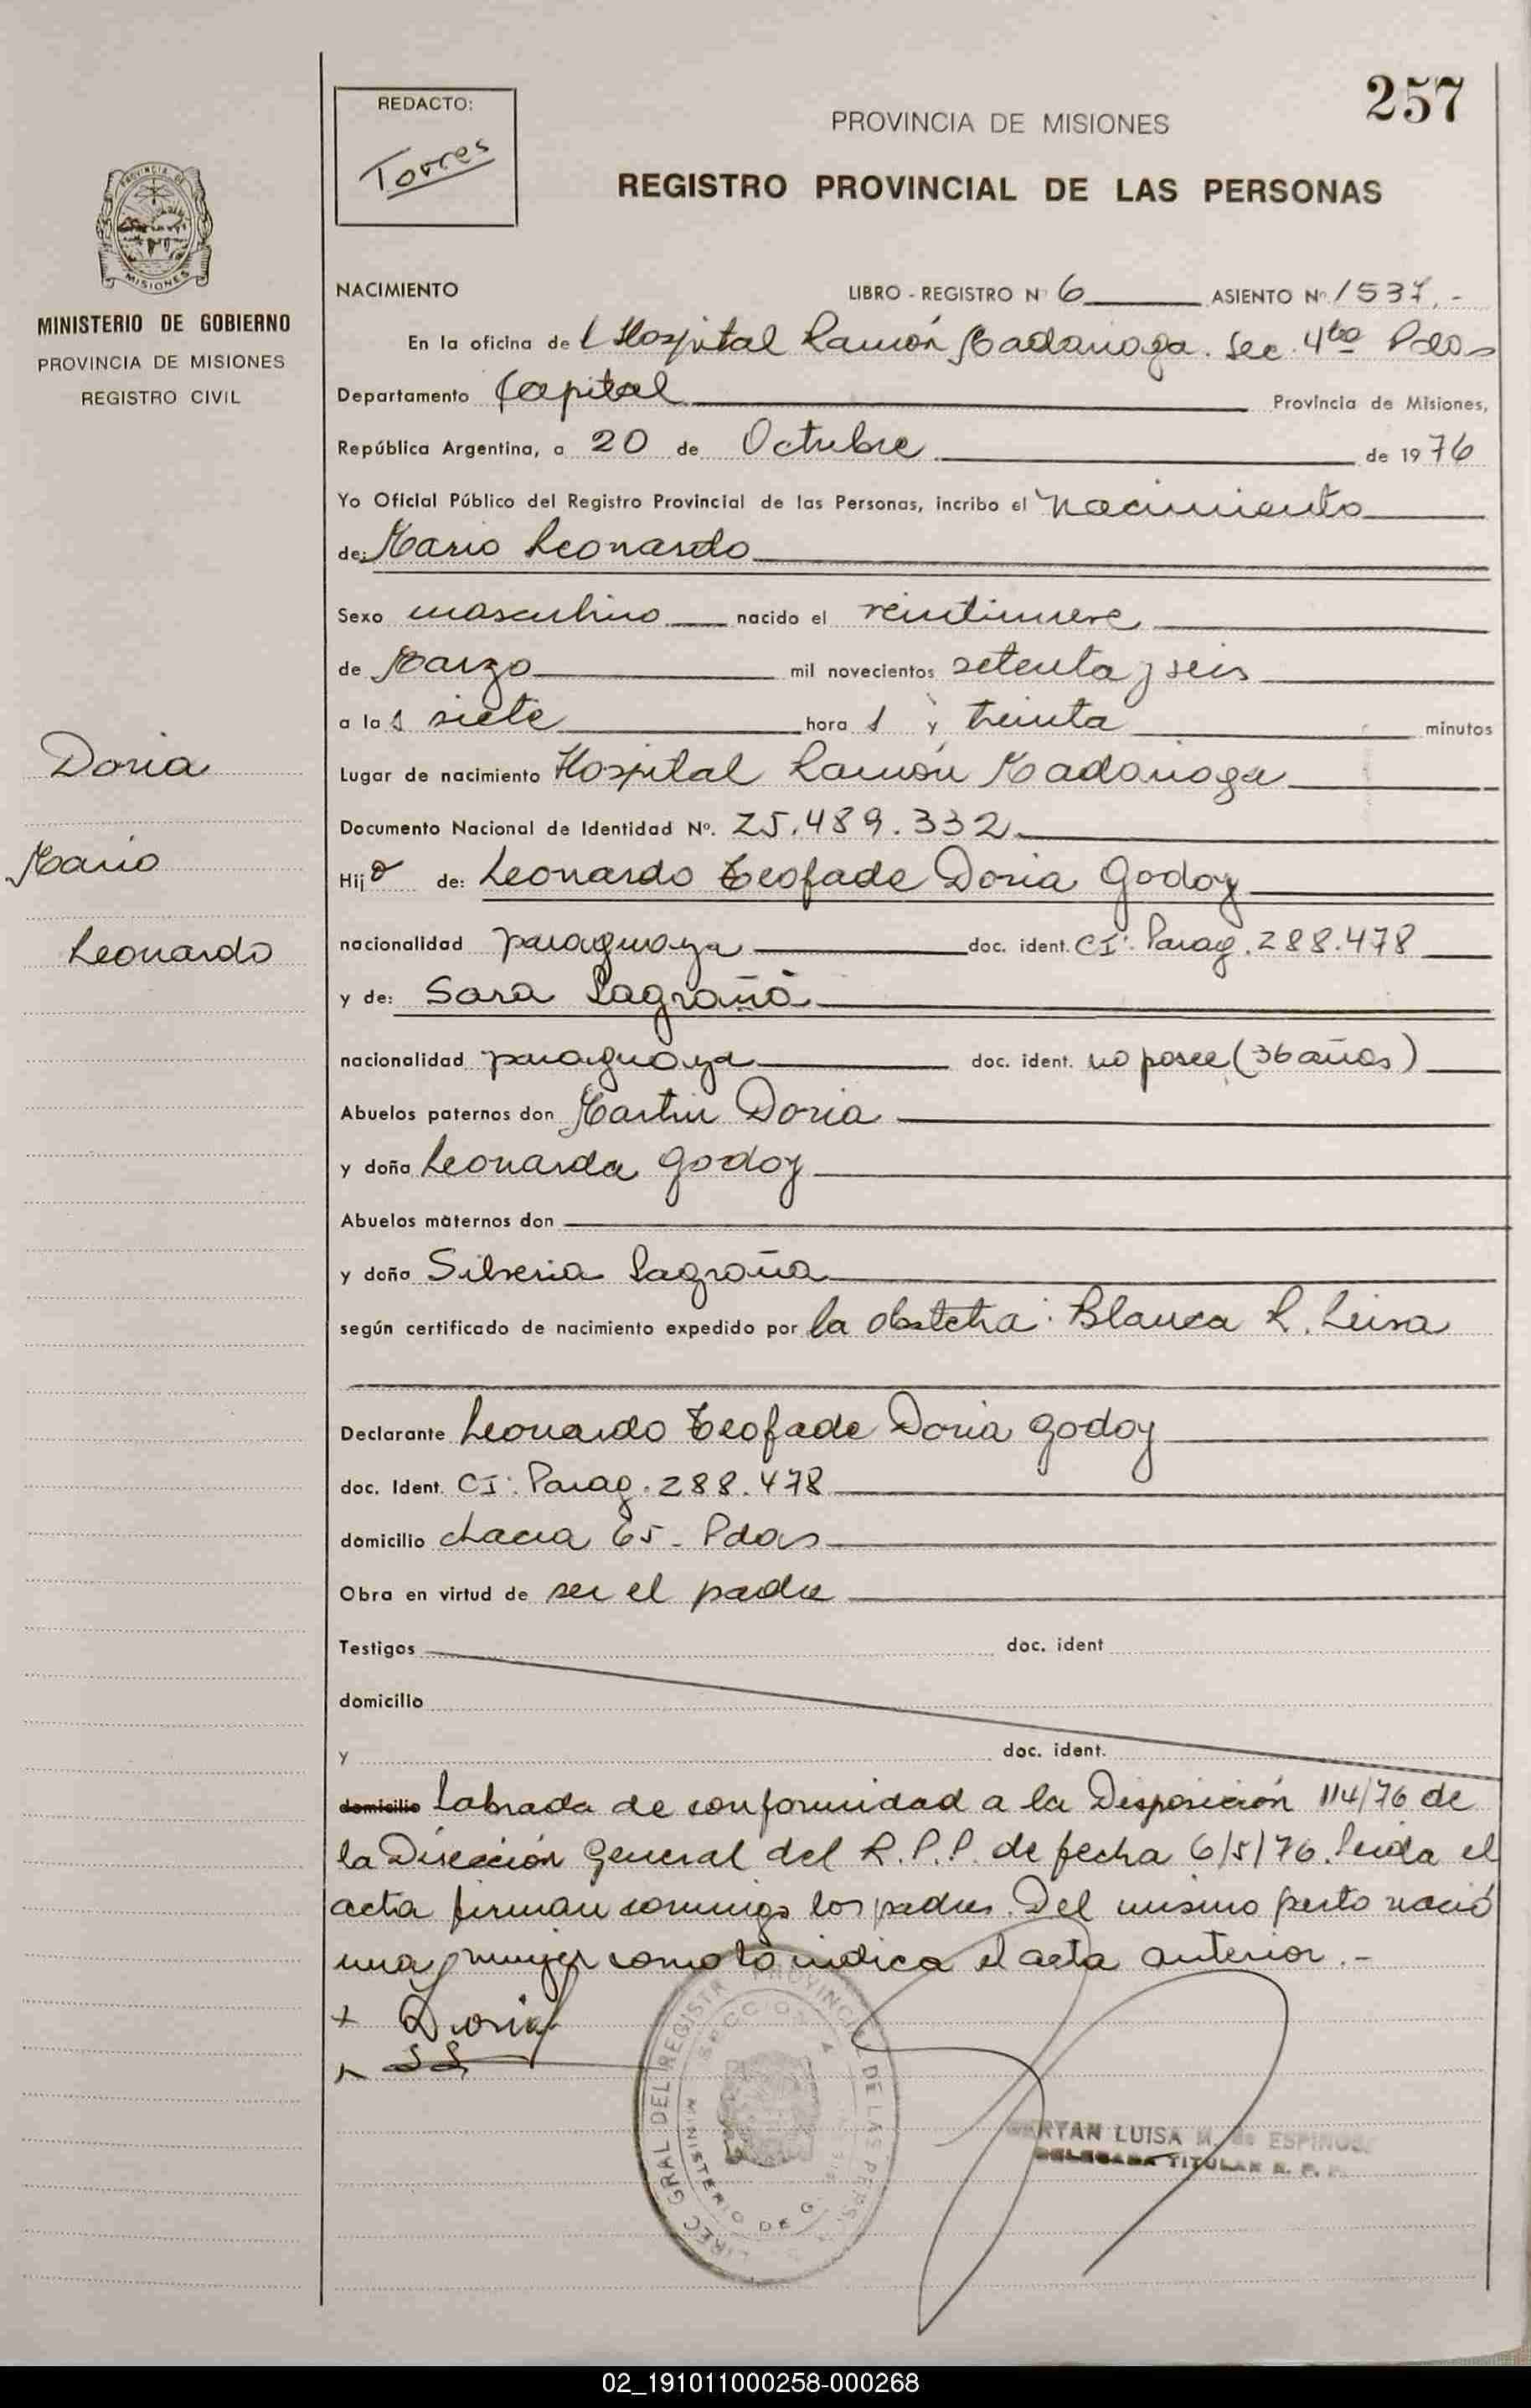 257
REDACTO:
Torres
PROVINCIA DE MISIONES
REGISTRO PROVINCIAL DE LAS PERSONAS
PROVINCIA DE
MISIONES
MINISTERIO DE GOBIERNO
PROVINCIA DE MISIONES
REGISTRO CIVIL
Doria
Mario
Leonardo
NACIMIENTO LIBRO - REGISTRO Nº 6 ASIENTO Nº 1537.-
En la oficina del Hospital Ramón Madariaga. Sec. 4ta Pdas
Departamento Capital Provincia de Misiones,
República Argentina, a 20 de Octubre de 1976
Yo Oficial Público del Registro Provincial de las Personas, incribo el Nacimiento
de: Mario Leonardo
Sexo masculino nacido el veintinueve
de Marzo mil novecientos setenta y seis
a las siete horas y treinta minutos
Lugar de nacimiento Hospital Ramón Madariaga
Documento Nacional de Identidad Nº. 25.489.332
Hijo de: Leonardo Teofade Doria Godoy
nacionalidad paraguaya doc. ident. CI: Parag. 288.478
y de: Sara Lagraña
nacionalidad paraguaya doc. ident. no posee (36 años)
Abuelos paternos don Martin Doria
y doña Leonarda Godoy
Abuelos maternos don
y doña Silveria Lagraña
según certificado de nacimiento expedido por la obstetra: Blanca R. Leiva
Declarante Leonardo Teofade Doria Godoy
doc. Ident. CI: Parag. 288.478
domicilio chacra 65 - Pdas
Obra en virtud de ser el padre
Testigos doc. ident
domicilio
y doc. ident.
domicilio Labrada de conformidad a la Disposición 114/76 de
la Dirección General del R.P.P. de fecha 6/5/76. Leida el
acta firman conmigo los padres. Del mismo parto nació
una mujer como lo indica el acta anterior.-
x Doria
S L
DIREC GRAL DEL REGISTR PROVINCIAL DE LAS PERS.
SECCION
MINISTERIO DE G
LUISA M. de ESPINOSA
DELEGADA TITULAR R. P. P.
02_191011000258-000268